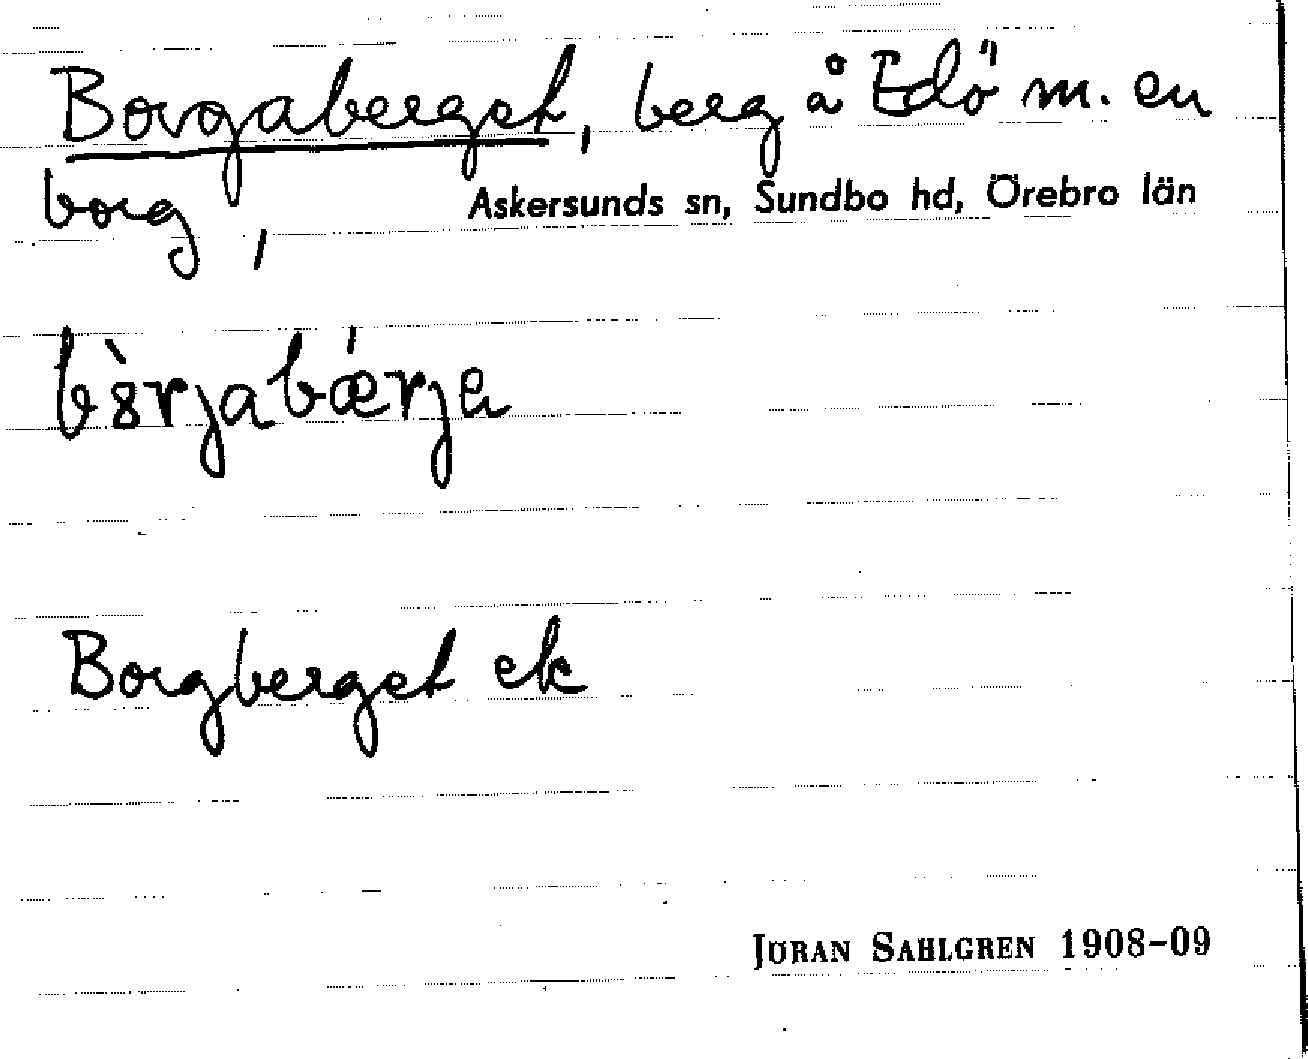 Borgaberget, berg å Edö m. en
borg,
Askersunds sn, Sundbo hd, Örebro län
b๖̀rjabǽrja
Borgberget ek
JÖRAN SAHLGREN 1908-09